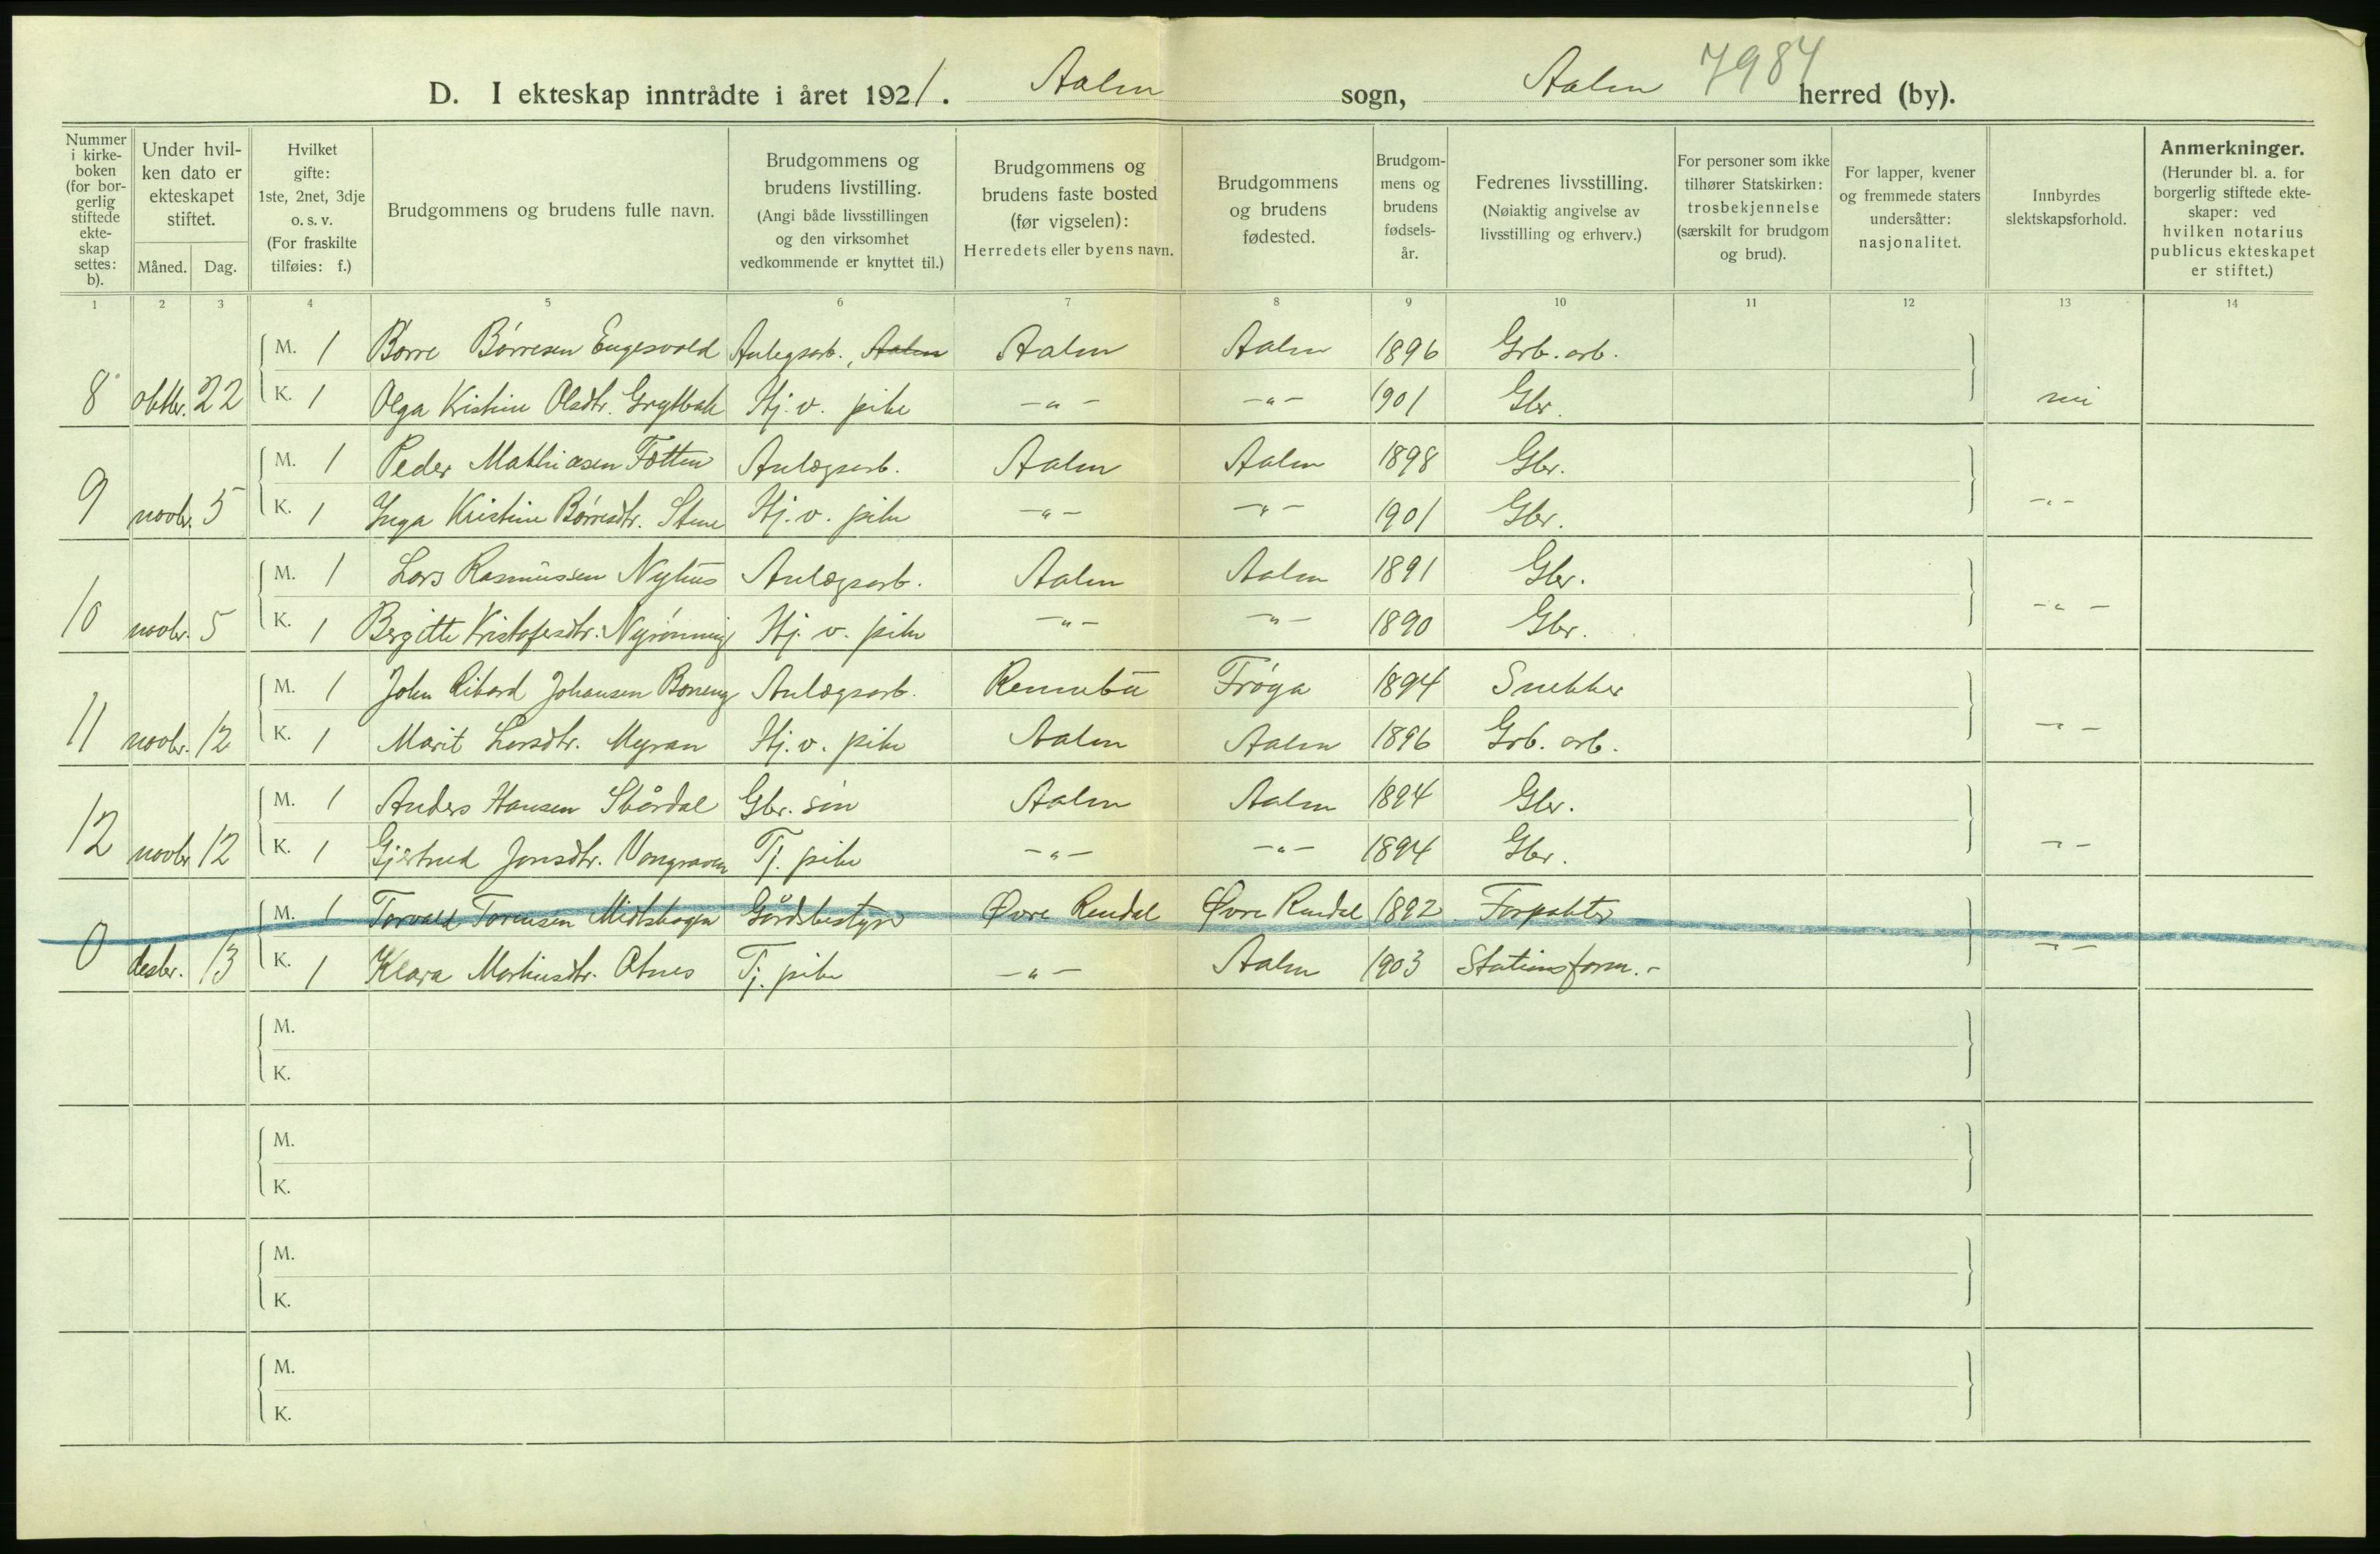 D. I ekteskap inntrådte i året 1921. Aalen sogn, Aalen herred (by).
7984
Nummer i kirke-boken (for bor-gerlig stiftede ekte-skap settes: b).
Under hvil-ken dato er ekteskapet stiftet.
Måned. Dag.
Hvilket gifte: 1ste, 2net, 3dje o. s. v. (For fraskilte tilføies: f.)
Brudgommens og brudens fulle navn.
Brudgommens og brudens livstilling. (Angi både livsstillingen og den virksomhet vedkommende er knyttet til.)
Brudgommens og brudens faste bosted (før vigselen): Herredets eller byens navn.
Brudgommens og brudens fødested.
Brudgom-mens og brudens fødsels-år.
Fedrenes livsstilling. (Nøiaktig angivelse av livsstilling og erhverv.)
For personer som ikke tilhører Statskirken: trosbekjennelse (særskilt for brudgom og brud).
For lapper, kvener og fremmede staters undersåtter: nasjonalitet.
Innbyrdes slektskapsforhold.
Anmerkninger. (Herunder bl. a. for borgerlig stiftede ekte-skaper: ved hvilken notarius publicus ekteskapet er stiftet.)
1 2 3 4 5 6 7 8 9 10 11 12 13 14
M. 1 Børre Børresen Engesvold Anlegsarb., Aalen Aalen Aalen 1896 Grb. arb.
8 oktbr. 22 K. 1 Olga Kristine Olsdtr. Grytbak Hj. v. pike -"- -"- 1901 Gbr. nei
M. 1 Peder Mathiasen Tøtten Anlægsarb. Aalen Aalen 1898 Gbr.
9 novbr. 5 K. 1 Inga Kristine Børresdtr. Stene Hj. v. pike -"- -"- 1901 Gbr. -"-
M. 1 Lars Rasmussen Nyhus Anlægsarb. Aalen Aalen 1891 Gbr.
10 novbr. 5 K. 1 Bergitte Kristofersdtr. Nyrønning Hj. v. pike -"- -"- 1890 Gbr. -"-
M. 1 John Rikard Johansen Anlægsarb. Rennebu Frøya 1894 Snekker
11 novbr. 12 K. 1 Marit Larsdtr. Myran Hj. v. pike Aalen Aalen 1896 Grb. arb. -"-
M. 1 Anders Hansen Skårdal Gbr. søn Aalen Aalen 1894 Gbr.
12 novbr 12 K. 1 Gjertrud Jonsdtr. Vongraven Tj. pike -"- -"- 1894 Gbr. -"-
M. 1 Torvald Torensen Midtskogen Gårdsbestyrer Øvre Rendal Øvre Rendal 1892 Forpakter
0 desbr. 13 K. 1 Klara Martinsdtr. Atnes Tj. pike -"- Aalen 1903 Stationsform. -"-
M.
K.
M.
K.
M.
K.
M.
K.